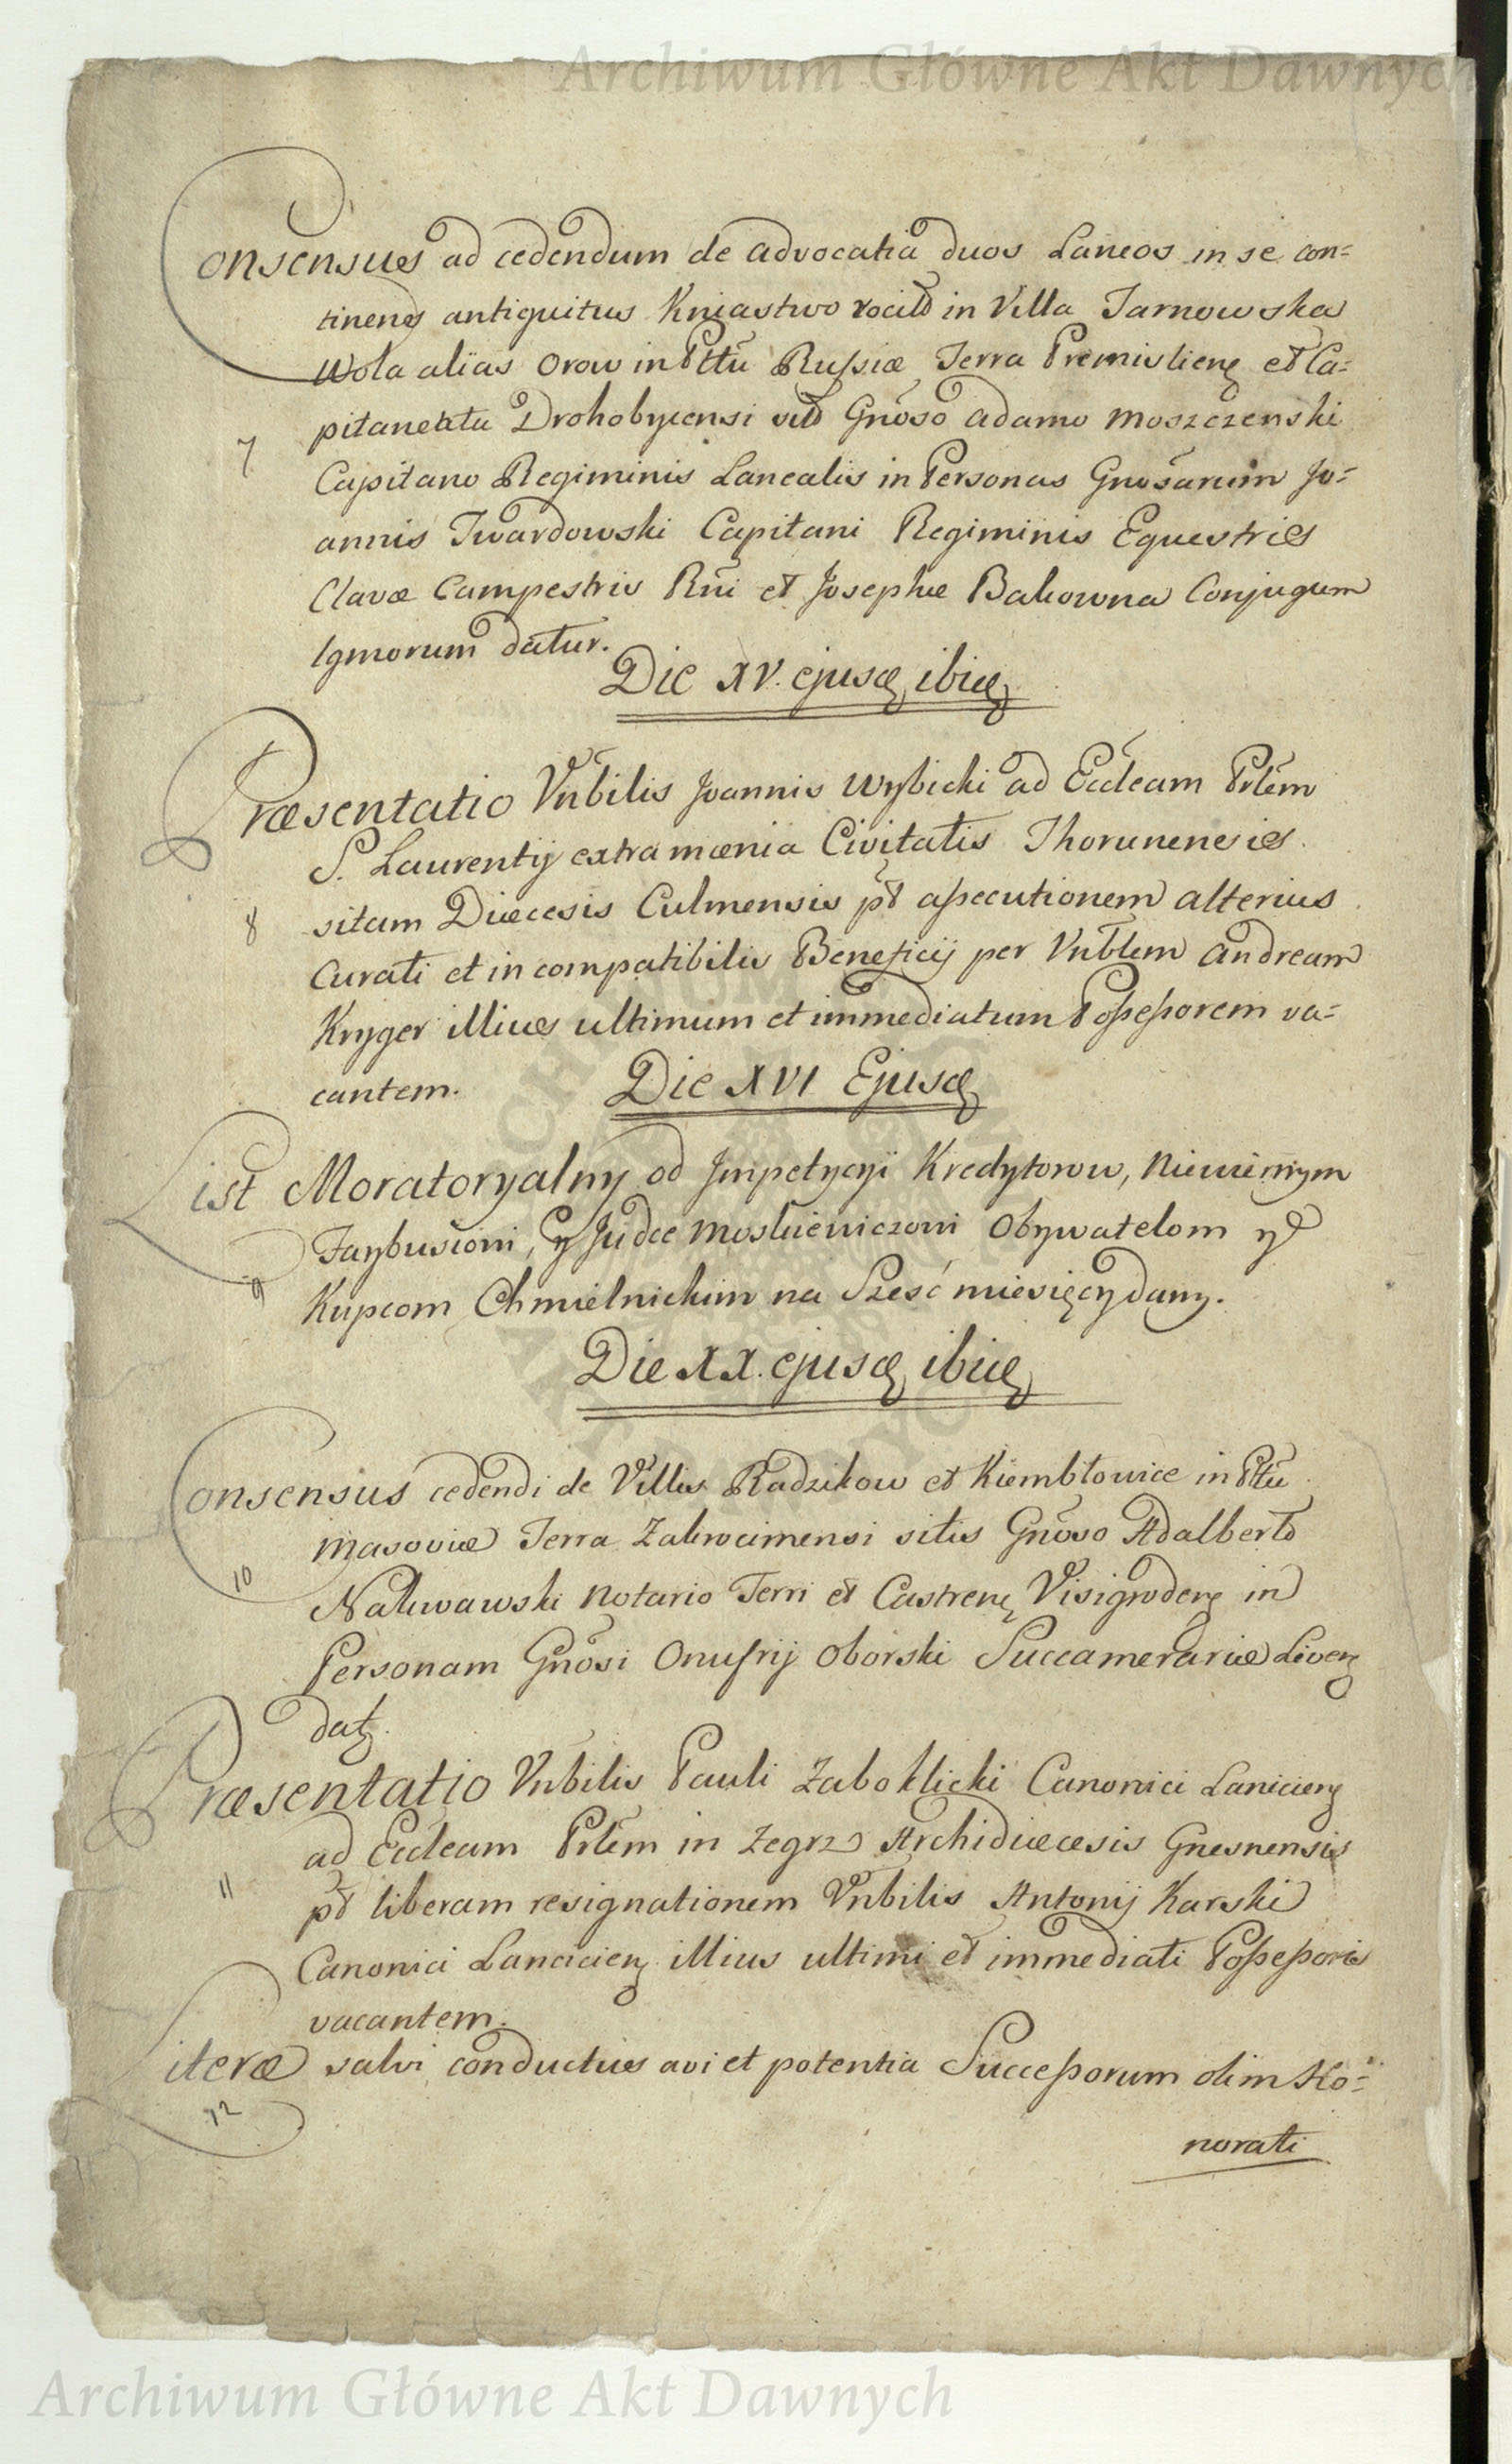 Archiwum Główne Akt Dawnych
Consensus ad cedendum de advocatia duos Laneos in se con=
tinens antiquitus Kniastwo vocato in Villa Tarnowska
Wola alias Orow in Pttu Russiæ Terra Premisliens et Ca=
pitaneatu Drohobycensi Gnoso Adamo Moszczenski
7
Capitano Regiminis Lanealis in Personas Gnosorum Jo=
annis Twardowski Capitani Regiminis Equestris
Clavæ Campestris Rni et Josephæ Bakowna Conjugum
Igmorum datur.
Die XV. ejusd ibid
Præsentatio Vnbilis Joannis Wybicki ad Eccleam Prlem
S. Laurentij extra mænia Civitatis Thorunensis
8
sitam Diæcesis Culmensis pt assecutionem alterius
Curati et incompatibilis Beneficij per Vnblem Andream
Kryger illius ultimum et immediatum Possessorem va=
cantem.
Die XVI Ejusd
List Moratoryalny od Impetycyi Kredytorow, Niewiernym
Faybusiowi, y Judce Moskiewiczowi Obywatelom y
9
Kupcom Chmielnickim na Sześć miesięcy dany.
Die XX. ejusd ibid
Consensus cedendi de Villis Radzikow et Kiembłowice in Pttu
Masoviæ Terra Zakrocimensi sitis Gnoso Adalberto
10
Nakwawski Notario Terri et Castrens Visigrodens in
Personam Gnosi Onufrij Oborski Succamerariæ Livens
dat.
Præsentatio Vnbilis Pauli Zaboklicki Canonici Lanciciens
ad Eccleam Prlem in Zegrz Archidiæcesis Gnesnensis
11
pt liberam resignationem Vnbilis Antonij Karski
Canonici Lanciciens illius ultimi et immediati Possessoris
vacantem.
Literæ salvi conductus avi et potentia Successorum olim Ho=
12
norati
Archiwum Główne Akt Dawnych